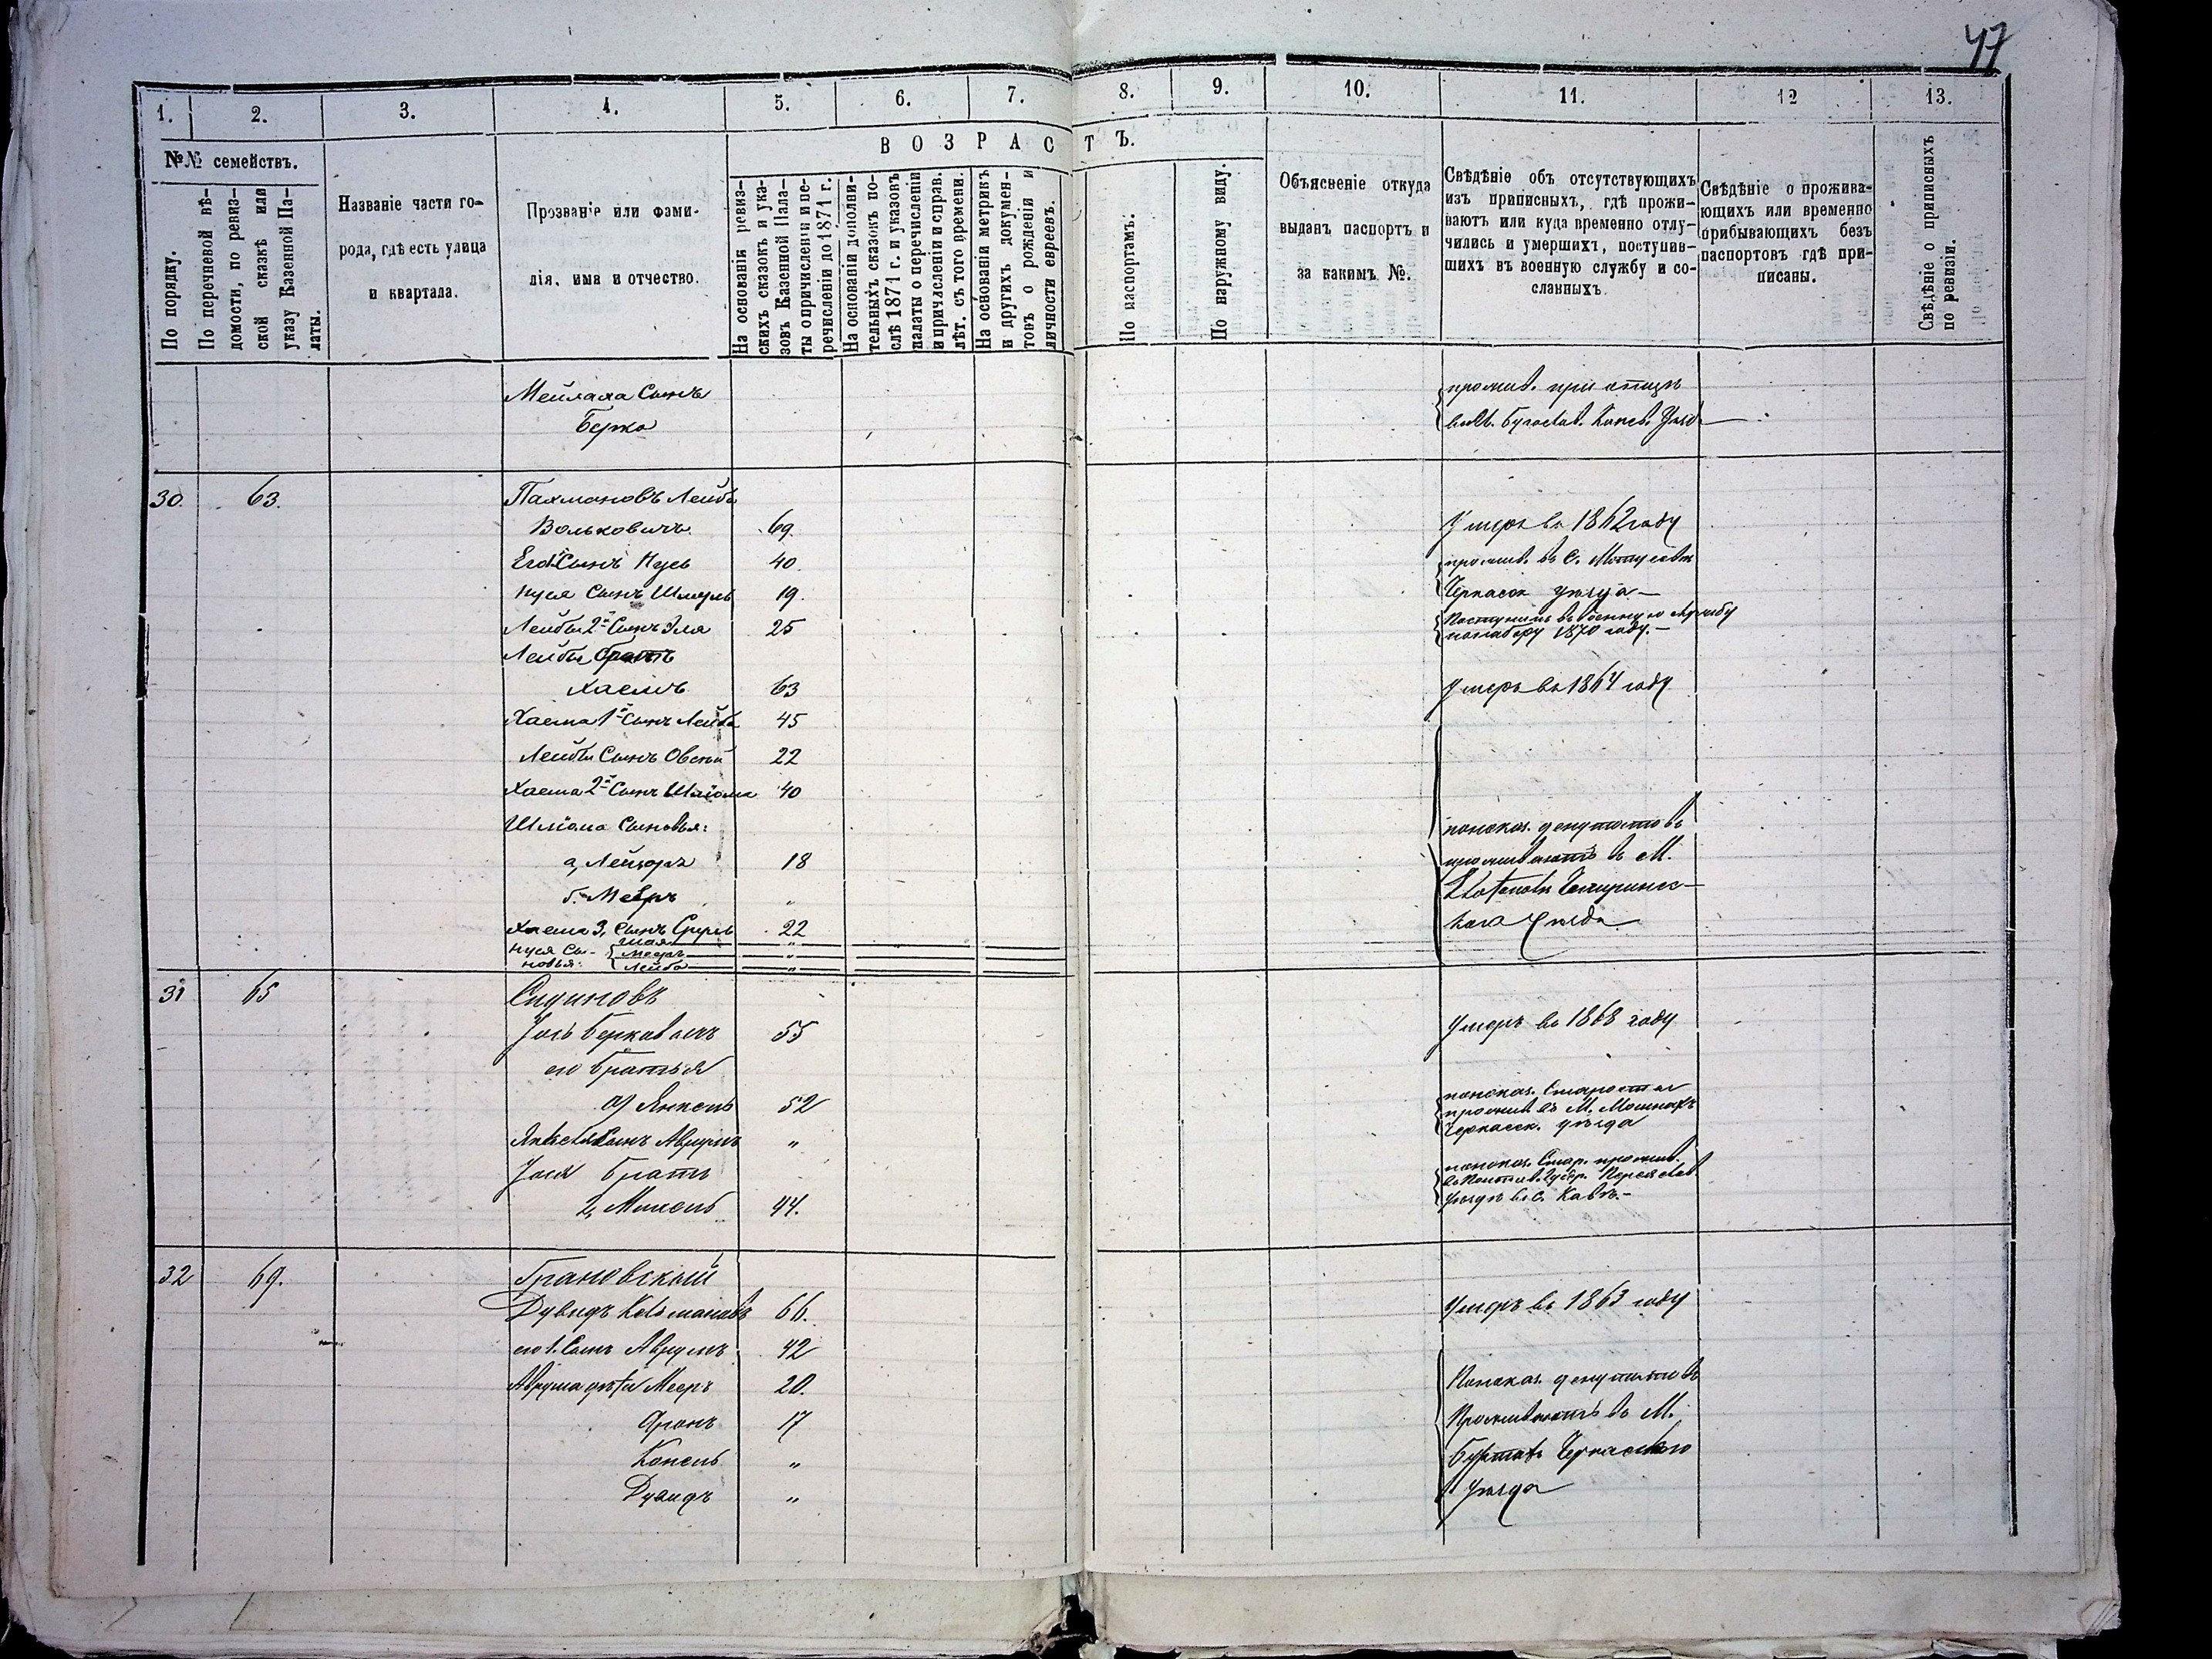 47
1. 2. 3. 4. 5. 6. 7. 8. 9. 10. 11. 12 13.
№№ семействъ.
По порядку.
По перечневой вѣ-
домости, по ревиз-
ской сказкѣ или
указу Казенной Па-
латы.
Названіе части го-
рода, гдѣ есть улица
и квартала.
Прозваніе или фами-
лія, имя и отчество.
ВОЗРАСТЪ.
На основаніи ревиз-
скихъ сказокъ и ука-
зовъ Казенной Пала-
ты о причисленіи и пе-
речисленіи до 1871 г.
На основаніи дополни-
тельныхъ сказокъ по-
слѣ 1871 г. и указовъ
палаты о перечисленіи
и причисленіи и справ.
лѣт. съ того времени.
На основаніи метрикъ
и другихъ докумен-
товъ о рожденіи и
личности евреевъ.
По паспортамъ.
По наружному виду.
Объясненіе откуда
выданъ паспортъ и
за какимъ №.
Свѣдѣніе объ отсутствующихъ
изъ приписныхъ, гдѣ прожи-
ваютъ или куда временно отлу-
чились и умершихъ, поступив-
шихъ въ военную службу и со-
сланныхъ
Свѣдѣніе о прожива-
ющихъ или временно
прибывающихъ безъ
паспортовъ гдѣ при-
писаны.
Свѣдѣніе о приписныхъ
по ревизіи.
Сынъ прожив. при отцѣ
Берко Богослав. Канев. Уѣзд.
30. 63. Лейба
Вольковичъ. 69. Умеръ въ 1862 году
Его Сынъ Нусь 40. прожив. въ с.
Нуся Сынъ Шмуль 19. Черкасск уѣзда
Лейбы 2й Сынъ Эля 25 Поступилъ въ военную службу
по набору 1870 году.
Лейбы братъ
Хаемъ 63 Умеръ въ 1864 году
Хаема 1й Сынъ Лейба 45
Лейбы Сынъ Овсей 22
Хаема 2й Сынъ Шліома 40
Шліома Сыновья: показ. депутатовъ
а, Лейзоръ 18 проживаютъ въ М.
б. Меръ " Чигиринс-
Хаема 3, Сынъ Сруль 22 каго Уѣзда
Нуся Сы- Шая "
Меер "
новья: Лейба "
31 65
Іось Берковичъ 55 Умеръ въ 1868 году
его братья
а) Янкель 52 показ. Старосты
прожив въ М. Мошнахъ
Черкасск. уѣзда
Янкеля Сынъ Аврумъ "
братъ показ. Стар. прожив.
въ Полтав. Губер. Переяслав.
2, 44. уѣздѣ въ с.
32 69. Грановскій
Дувидъ 66. Умеръ въ 1863 году
его 1. Сынъ Аврумъ 42
Аврума дѣти Мееръ 20. Показ. депутатовъ
Аронъ 17 Проживаютъ въ М.
" Черкаскаго
Дувидъ " Уѣзда